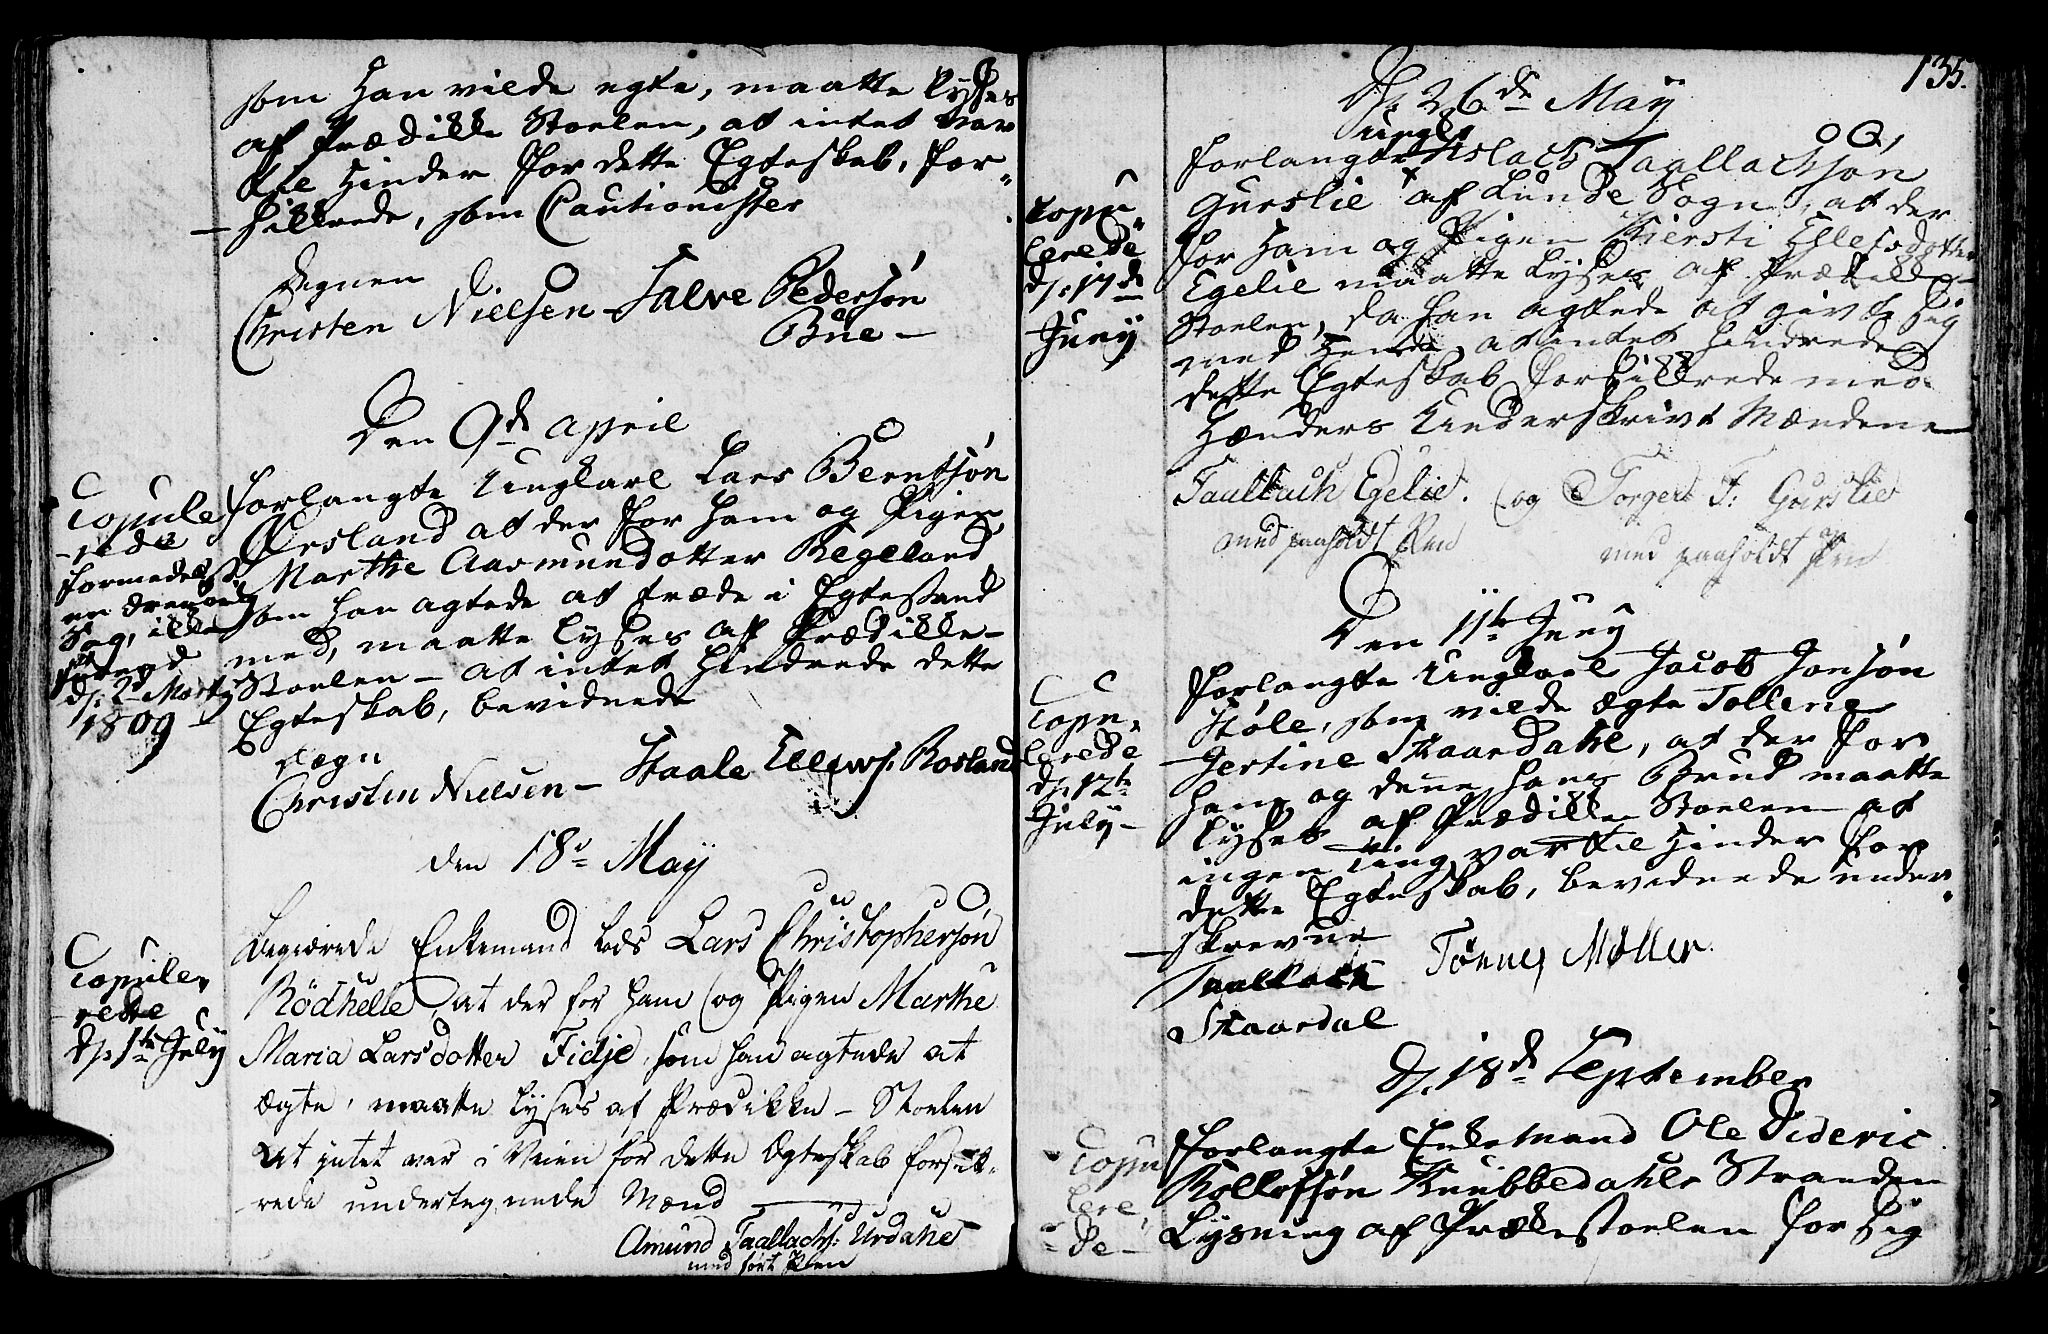 som Han vilde egte, maatte lyses
af Prædikke Stoelen, at intet var
til Hinder for dette Egteskab, for-
-sikkrede, som Cautionister
Degnen
Christen Nielsen - Salve Pedersøn
Bue -
Den 9de April
Copule
-rede
formedelst
en
Sag, ikke
d: 2d Marty
1809 -
forlangte Ungkarl Lars Berntsøn
Ørsland at der for ham og Pigen
Marthe Aasmundotter Regeland
som han agtede at træde i Egtestand
med, maatte lyses af Prædikke-
Stoelen - at intet hindrede dette
Egteskab, bevidnede
Degn
Christen Nielsen - Staale Ellews: Rosland
den 18de May
Copule-
rede
d: 1te July
Begiærede Enkemand Lods Lars Christophersøn
Rödhelle, at der for ham og Pigen Marthe
Maria Larsdotter Fidje, som han agtede at
ægte, maatte lyses af Prædikke - Stoelen
At intet var i Veien for dette Egteskab forsik-
rede undertegnede Mænd
Amund Taallachs: Urdahl
med ført Pen
135.
D: 26de May
Copu-
lerede
d: 17de
Juny
forlangte Ungkl Aslach Taallachsøn
Gurslie af Lunde Sogn, at der
for Ham og Pigen Kiersti Ellefsdotter
Egelie maatte lyses af Prædikke-
Stoelen, da han agtede at givte sig
med Hende, at intet hindrede
dette Egteskab forsikkrede med
Hænders Underskrivt Mændene
Taallach Egelie. og Torger T: Gurslie
med paaholdt Pen
med paaholdt Pen
Den 11te Juny
Copu-
lerede
d: 12te
July -
forlangte Ungkarl Jacob Jonsøn
Støle, som vilde ægte Tollene
Gertine Skaardahl, at der for
ham og denne hans Brud maatte
lyses af Prædikke Stoelen at
ingen Ting var til Hinder for
dette Egteskab, bevidnede under-
-skrevne
Taallach
Skaardal
Tønnes Møller.
D: 18de September
Copu
lere-
de -
forlangte Enkemand Ole Dideric
Rollofsøn Knubbedahls Stranden
Lysning af Prækestoelen for sig